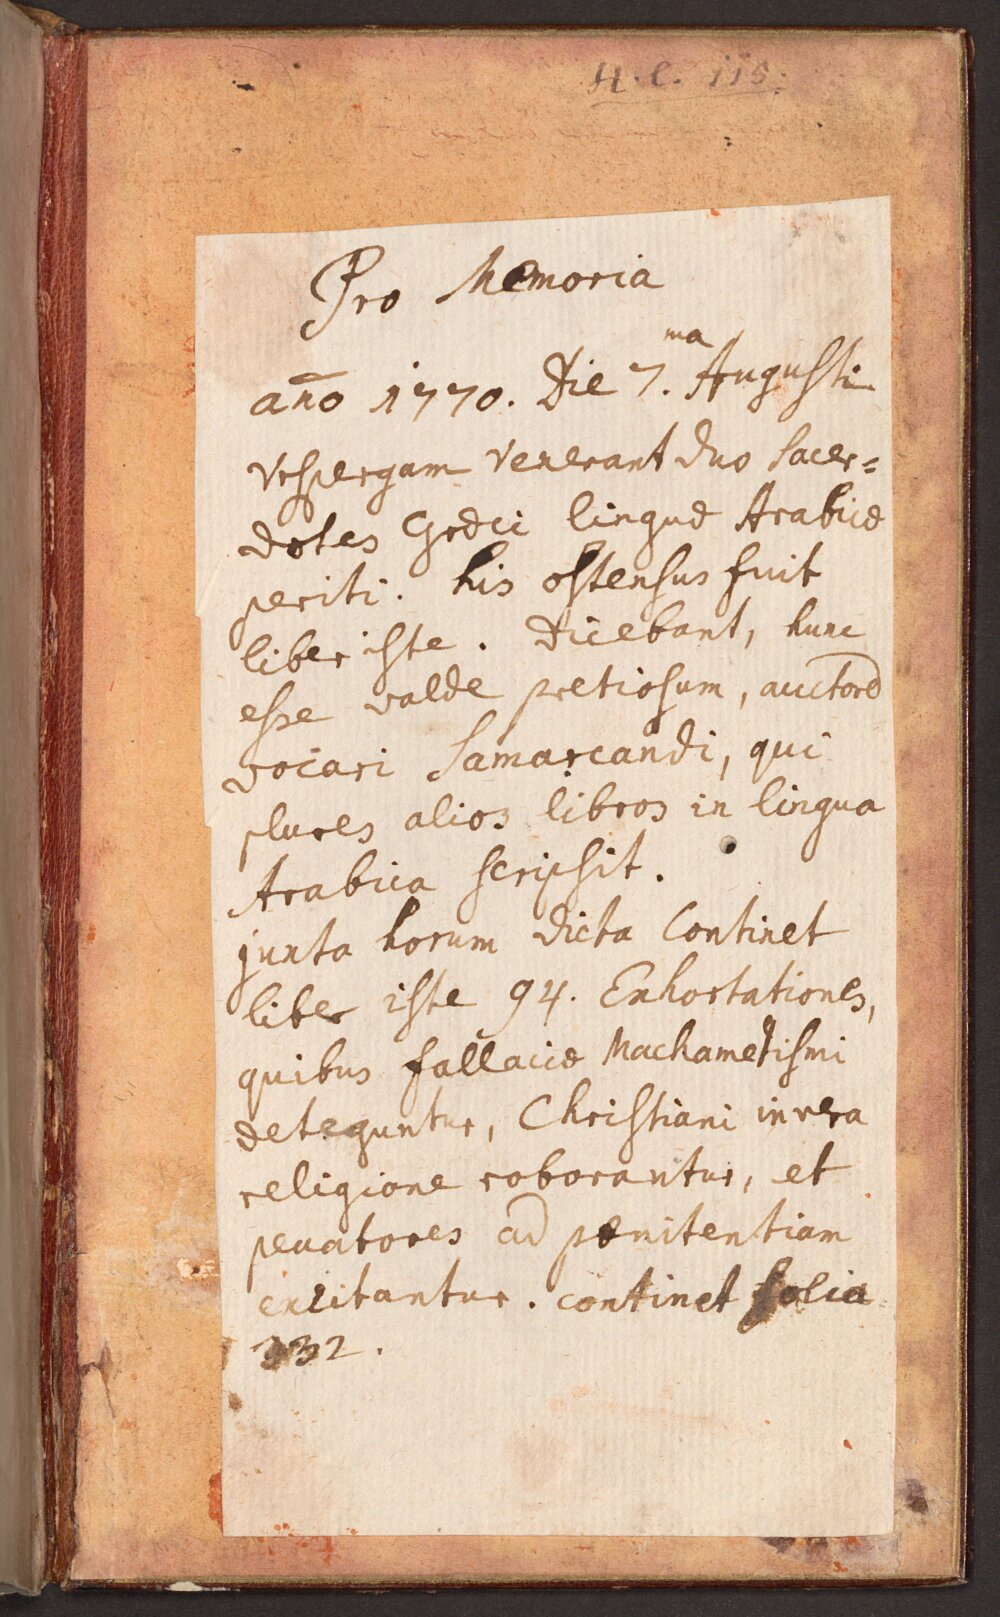 H. C. 115.
Pro Memoria
año 1770. Die 7.ma Augusti
Vrspergam venerant duo Sacer=
dotes Græci linguæ Arabicæ
periti. his ostensus fuit
liber iste. Dicebant, hunc
esse valde pretiosum, auctorē
vocari Samarcandi, qui
plures alios libros in lingua
Arabica scripsit.
juxta horum dicta Continet
liber iste 94. Exhortationes,
quibus fallaciæ Machametismi
deteguntur, Christiani in vera
religione roborantur, et
peccatores ad pœnitentiam
excitantur. continet folia
332.